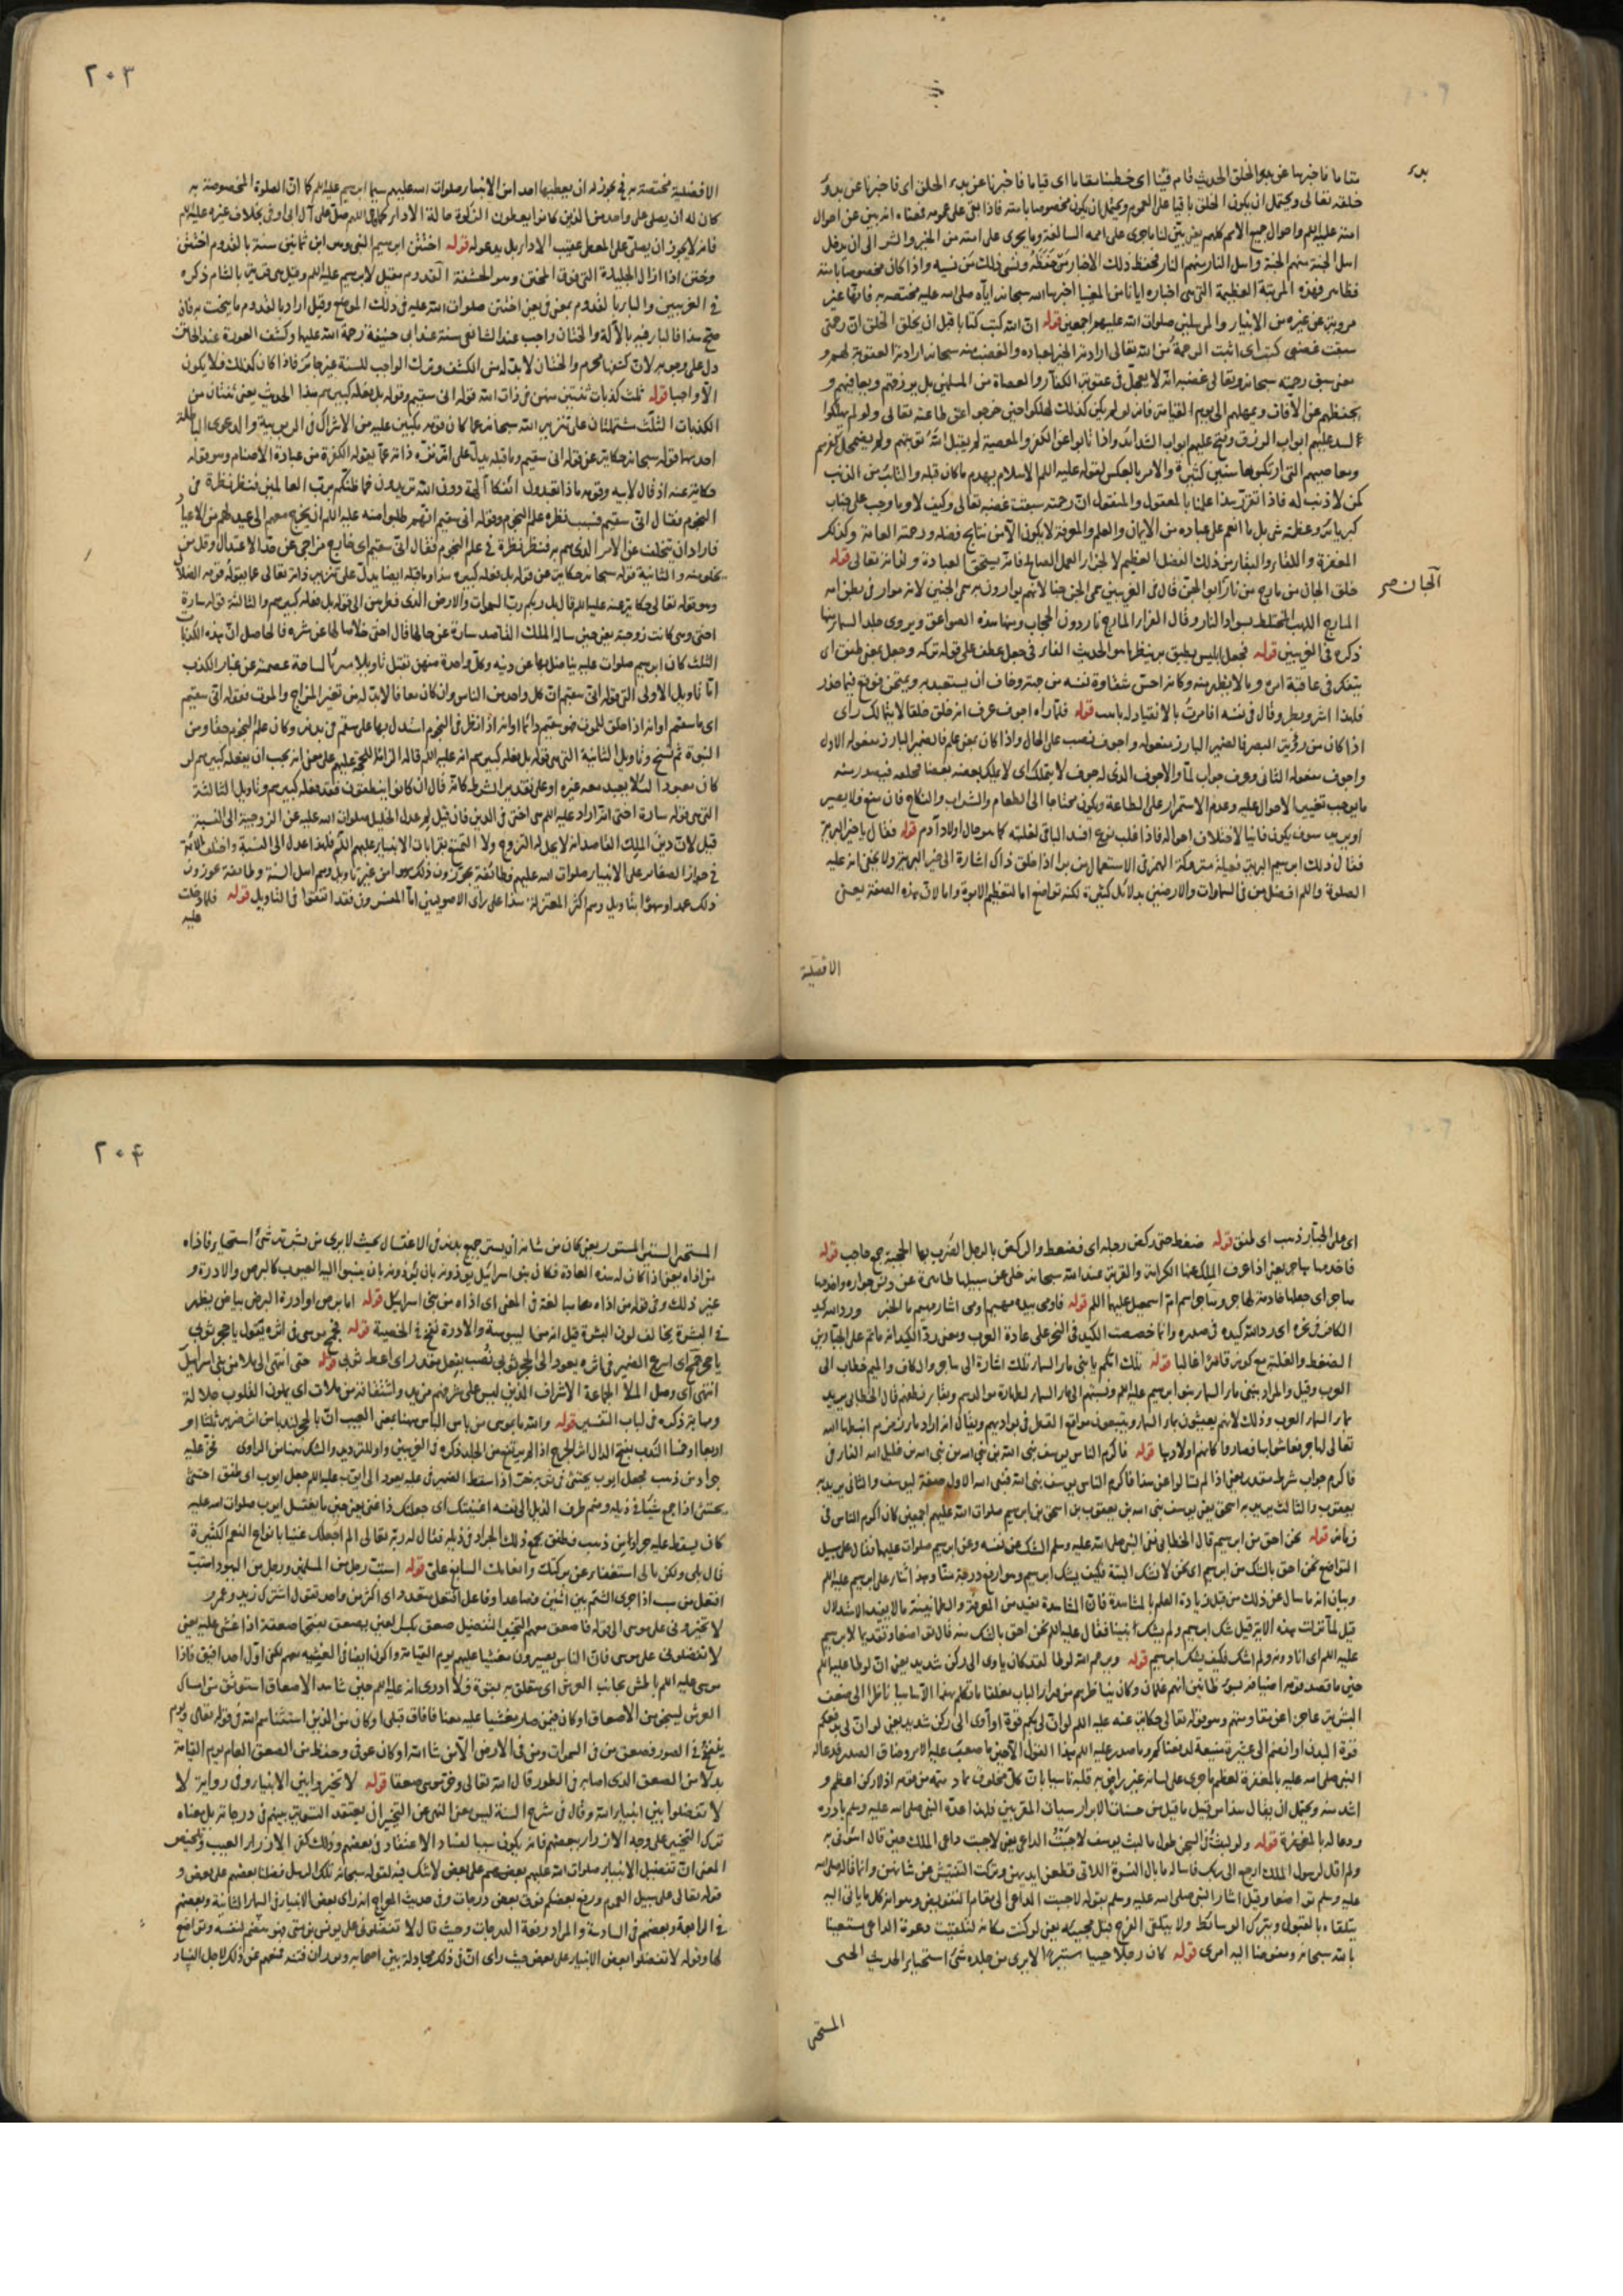 ٢٠٣
بدء
مقاما فاخبرنا عن بدء الخلق الحديث قام فينا اى خطبنا مقاما اى قياما فاخبرنا عن بدء الخلق اى فاخبرنا عن بدء
خلقه تعالى ويحتمل ان يكون الخلق باقيا على العموم ويحتمل ان يكون مخصوصا بامته فاذا بقى على عمومه فمعناه انه بين عن احوال
امته عليه السلم واحوال جميع الامم كلهم يعنى بين لنا ما جرى على اممه السالفة وما يجرى على امته من الخير والشر الى ان يدخل
اهل الجنة منهم الجنة واهل النار منهم النار فحفظ ذلك الاخبار من حفظه ونسى ذلك من نسيه واذا كان مخصوصا بامته
فظاهر فهذه المرتبة العظيمة التى هى اخباره ايانا من المغيبا اخبرها الله سبحانه اياه صلى الله عليه مختصة به فانها غير
مروية عن غيره من الانبياء والمرسلين صلوات الله عليهم اجمعين قوله ان الله كتب كتابا قبل ان يخلق الخلق ان رحمتى
سبقت غضبى كتب اى اثبت الرحمة من الله تعالى ارادته الخير لعباده والغضب منه سبحانه ارادته العقوبة لهم و
معنى سبق رحمته سبحانه وتعالى غضبه انه لا يعجل فى عقوبة الكفار والعصاة من المسلمين بل يرزقهم ويعافيهم و
يحفظهم عن الآفات ويمهلهم الى يوم القيامة فانه لو لم يكن كذلك لهلكوا حين خرجوا عن طاعته تعالى ولو لم يهلكوا
لسد عليهم ابواب الرزق وفتح عليهم ابواب الشدائد واذا تابوا عن الكفر والمعصية لم يقبل الله توبتهم ولم يضمحل كفرهم
ومعاصيهم التى ارتكبوها سنين كثيرة والامر بالعكس لقوله عليه السلم الاسلام يهدم ما كان قبله والتائب من الذنب
كمن لا ذنب له فاذا تقرر هذا علمنا بالمعقول والمنقول ان رحمته سبقت غضبه تعالى وكيف لا وما وجب على جناب
كبريائه وعظمته شى بل ما انعم على عباده من الايمان والعلم والمعرفة لا يكون الا من نتايج فضله ورحمته العامة وكذلك
المغفرة واللقاء والبقاء من ذلك الفضل العظيم لا لجزاء العمل الصالح فانه يستحق العبادة ولذاته تعالى قوله
الجان صح
خلق الجان من مارج من نار ابو الجن قال فى الغريبين سمى الجن جنا لانهم يتوارون به سمى الجنين لانه متوار فى بطن امه
المارج اللهب المختلط بسواد النار وقال الفراء المارج نار دون الحجاب ومنها هذه الصواعق ويروى جلد السماء منها
ذكره فى الغريبين قوله فجعل ابليس يطيق به ينظر ما هو الحديث الفاء فى فجعل عطف على قوله تركه وجعل بمعنى طفق اى
يتفكر فى عاقبة امره وما لا يظهر منه وكانه احس شقاوة نفسه من جهته وخاف ان يستعبد به ويمتحن فوقع فيما حذر
فلهذا اشر وبطر وقال فى نفسه ان امرت بالانقياد له بامت قوله فلما راه اجوف عرف انه خلق خلقا لا يتمالك راى
اذا كان من رؤية البصر فالضمير البارز مفعوله واجوف نصب على الحال واذا كان بمعنى علم فالضمير البارز مفعوله الاول
واجوف مفعوله الثانى وعرف جواب لما والاجوف الذى له جوف لا يتمالك اى لا يملك بعضه بعضا فيصدر منه
ما يوجب تغيير الاحوال عليه وعدم الاستمرار على الطاعة ويكون محتاجا الى الطعام والشراب والنكاح فان منع ولا يصير
سوف يكون فانيا لاختلاف احواله فاذا غلب نوع افسد الباقى لغلبته كما هو حال اولاد آدم قوله فقال يا خير البرية
فقال ذلك ابرهيم البرية فعيلة متروكة الهمز فى الاستعمال من برا اذا خلق ذاك اشارة الى خير البرية ولا يخفى انه عليه
الصلوة والسلم افضل من فى السماوات والارضين بدلائل كثيرة لكنه تواضع اما لتعظيم الابوة واما لان هذه الصفة يعنى
الافضلية
الافضلية مختصة به فيجوز له ان يعطيها احدا من الانبياء صلوات الله عليهم سيما ابرهيم عليه السلم كما ان الصلوة المخصوصة به
كان له ان يصلى على واحد من الذين كانوا يعطون الزكوة حالة الاداء كما قال اللهم صل على آل ابى اوفى بخلاف غيره عليه السلم
فانه لا يجوز ان يصلى على المعطى عقيب الاداء بل يدعو له قوله اختتن ابرهيم النبى وهو ابن ثمانين سنة بالقدوم اختتن
وختن اذا ازال الجليدة التى فوق المختتن وهو الحشفة القدوم مقيل لابرهيم عليه السلم وقيل هى قرية بالشام ذكره
فى الغريبين والباء بالقدوم بمعنى فى يعنى اختتن صلوات الله عليه فى ذلك الموضع وقيل اراد بالقدوم ما ينحت به فان
صح هذا فالباء فيه بالآلة والختان واجب عند الشافعى سنة عند ابى حنيفة رحمة الله عليهما وكشف العورة عند الختان
دل على وجوبه لان كشفها محرم والختان لا بد له من الكشف وترك الواجب للسنة غير جائز فاذا كان كذلك فلا يكون
الا واجبا قوله ثلث كذبات ثنتين منهن فى ذات الله قوله انى سقيم وقوله بل فعله كبيرهم هذا الحديث يعنى ثنتان من
الكذبات الثلث مشتملتان على تنزيه الله سبحانه عما كان قومه مكبين عليه من الاشراك فى الربوبية والدعوى الباطلة
احديهما قوله سبحانه حكاية عن قوله انى سقيم وما قبله يدل على انه نزه ذاته عما يقوله الكفرة من عبادة الاصنام وهو قوله
حكاية عنه اذ قال لابيه وقومه ماذا تعبدون ائفكا آلهة دون الله تريدون فما ظنكم برب العالمين فنظر نظرة فى
النجوم فقال انى سقيم فسبب نظره علم النجوم وقوله انى سقيم انهم طلبوا منه عليه السلم ان يخرج معهم الى عيد لهم من الاعياد
فاراد ان يتخلف عن الامر الذى هم به فنظر نظرة فى علم النجوم فقال انى سقيم اى خارج مزاجى عن حد الاعتدال وقل من
يخلو منه والثانية قوله سبحانه حكاية عن قوله بل فعله كبيرهم هذا وما قبله ايضا يدل على تنزيه ذاته تعالى عما يقوله قومه الضلال
وهو قوله تعالى حكاية عنه عليه السلم قال بل ربكم رب السموات والارض الذى فطرهن الى قوله بل فعله كبيرهم والثالثة قوله سارة
اختى وهى كانت زوجته يعنى حين ساله الملك القاصد سارة عن حالها قال اختى خلاصا لها عن شره فالحاصل ان هذه الكذبات
الثلث كان ابرهيم صلوات عليه بها عن دينه وكل واحدة منهن تقبل تاويلا مبرئا لساحة عصمته عن غبار الكذب
اما تاويل الاولى التى قوله انى سقيم ان كل واحد من الناس وان كان معافا لا بد له من تغير المزاج والموت فقوله انى سقيم
اى ما سقيم او انه اذا خلق للموت فهو سقيم دائما او انه اذا نظر فى النجوم استدل بها على سقم فى بدنه وكان علم النجوم حقا ومن
النبوة ثم نسخ وتاويل الثانية التى هى قوله بل فعله كبيرهم انه عليه السلم قاله الزاما للحجة عليهم على معنى انه يجب ان يفعله كبيرهم لو
كان معبودا لئلا يعبد معه غيره او على تقدير الشرط كانه قال ان كانوا ينطقون فقد فعله كبيرهم وتاويل الثالثة
التى هى قوله سارة اختى انه اراد عليه السلم هى اختى فى الدين فان قيل لم عدل الخليل صلوات الله عليه عن الزوجية الى النسبة
قيل لان دين الملك القاصد انه لا يحل له التزوج ولا التمتع بقرابات الانبياء عليهم السلم فلهذا عدل الى النسبة واختلف الائمة
فى جواز الصغائر على الانبياء صلوات الله عليهم فطائفة يجوزون ذلك سهوا من غير تاويل وهم اهل السنة وطائفة يجوزون
ذلك عمدا وسهوا بتاويل وهم اكثر المعتزلة هذا على راى الاصوليين اما المفسرون فقد اتفقوا فى التاويل قوله فلما دخلت
عليه
٢٠٤
اى على الجبار ذهب اى طفق قوله ضغط حتى ركض رجله اى فضغط والركض بالرجل الضرب بها الحجبة جمع حاجب قوله
فاخدمها هاجر يعنى اذا عرف الملك هنا الكرامة والقربة عند الله سبحانه خلى عن سبيلها طاهرة عن دنس جواره واخدمها
هاجر اى جعلها خادمة لهاجر وهاجر اسم ام اسمعيل عليهما السلم قوله فاومى بيده مهيم اومى اشار مهيم ما الخبر ورد الله كيد
الكافر فى نحره اى رد الله كيده فى صدره وانما خصصت الكيد فى النحر على عادة العرب ومعنى رد الكيد انه ما تم على الجبار من
الضغط والغلبة مع كونه قاهرا غالبا قوله تلك امكم يا بنى ماء السماء تلك اشارة الى هاجر والكاف والميم خطاب الى
العرب وقيل والمراد ببنى ماء السماء بنو ابرهيم عليه السلم ونسبتهم الى ماء السماء لطهارة مواليدهم ويقاء نطفهم قال الخطابى يريد
بماء السماء العرب وذلك لانهم يعيشون بماء السماء ويتبعون مواقع القطر فى بواديهم ويقال انه اراد ماء زمزم انبطها الله
تعالى لهاجر فعاشوا بها فصاروا كانهم اولادها قوله فاكرم الناس يوسف نبى الله بن نبى الله بن نبى الله بن خليل الله الفاء فى
فاكرم جواب شرط مقدر يعنى اذا لم تسالوا عن هذا فاكرم الناس يوسف بنى الله فنبى الله الاول صفة ليوسف والثانى يريد به
يعقوب والثالث يريد به اسحق يعنى يوسف بنى الله بن يعقوب بن اسحق بن ابرهيم صلوات الله عليهم اجمعين كان اكرم الناس فى
زمانه قوله نحن احق من ابرهيم قال الخطابى نفى النبى صلى الله عليه وسلم الشك عن نفسه وعن ابرهيم صلوات عليهما فقال على سبيل
التواضع نحن احق بالشك من ابرهيم اى نحن لا نشك البتة فكيف يشك ابرهيم وهو ارفع درجة منا وهذا ثناء على ابرهيم عليه السلم
وبيان انه ما سال عن ذلك من قبل زيادة العلم بالمشاهدة فان المشاهدة تفيد من المعرفة والطمانينة ما لا يفيد الاستدلال
قيل لما نزلت هذه الآية قيل شك ابرهيم ولم يشك نبينا فقال عليه السلم نحن احق بالشك منه قال تواضعا وتقديما لابرهيم
عليه السلم اى انا دونه ولم اشك فكيف يشك ابرهيم قوله ويرحم الله لوطا لقد كان ياوى الى ركن شديد يعنى ان لوطا عليه السلم
حين ما قصد قومه اضيافه لسوء ظانين انهم غلمان وكان يناظرهم من وراء الباب مغلقا ما تكلم بهذا الآ ساهيا ناظرا الى ضعف
البشرية عاجزا عن مقاومتهم وهو قوله تعالى حكاية عنه عليه السلم لو ان لى بكم قوة او آوى الى ركن شديد يعنى لو ان لى بدفعكم
قوة البدن او انضم الى عشيرة منيعة لدفعتكم وما صدر عليه السلم هذا القول الآ حين ما صعب عليه الامر وضاق الصدر فدعا له
النبى صلى الله عليه بالمغفرة لعظم ما جرى على لسانه غير راض به قلبه ناسيا بان كل مخلوق ما دته من فقه اذ لا ركن اعظم و
اشد منه ويحتمل ان يقال هذا من قبيل ما قيل من حسنات الابرار سيات المقربين فلهذا عده النبى صلى الله عليه وسلم بادره
ودعا له بالمغفرة قوله ولو لبثت فى السجن طول ما لبث يوسف لاجبت الداعى يعنى لاجبت داعى الملك حين قال ائتونى به
ولم اقل لرسول الملك ارجع الى ربك فاساله ما بال النسوة اللاتى قطعن ايديهن وتركت التفتيش عن شانهن وانما قاله صلى الله
عليه وسلم تواضعا وقيل اشار النبى صلى الله عليه وسلم بقوله لاجبت الداعى الى مقام التفويض وهو ان كل ما يأتى اليه
يتلقاه بالقبول ويترك الوسائط ولا يتلقى الفرج قبل مجيئه يعنى لو كنت مكانه لتلقيت دعوة الداعى مستعينا
بالله سبحانه ومفوضا اليه امرى قوله كان رجلا حييا ستيرا لا يرى من جلده شئ استحياء الحديث الحيى
المستحى
المستحيى الستير المستور يعنى كان من شانه ان يستر جميع بدنه فى الاغتسال بحيث لا يرى من بشرته شئ استحياء فاذاه
من اذاه يعنى اذا كان له هذه العادة فكان بنو اسرائيل يؤذونه بان ينسبوا اليه العيوب كالبرص والادرة و
غير ذلك وفى قوله من اذاه مبالغة فى المعنى اى اذاه من بنى اسرائيل قوله اما برص او ادرة البرص بياض يظهر
فى البشرة يخالف لون البشرة قيل انه من اليبوسة والادرة نفخ فى الخصية قوله فجمح موسى فى اثره يقول يا حجر ثوبى
يا حجر جمح اى اسرع الضمير فى اثره يعود الى الحجر ثوبى نصب بفعل مقدر اى اعط ثوبى قوله حتى انتهى الى ملاء من بنى اسرائيل
انتهى اى وصل الملاء الجماعة الاشراف الذين ليس على شرفهم مزيد واشتقاقه من ملات اى يملون القلوب جلالة
ومهابة ذكره فى لباب التفسير قوله والله ما بموسى من باس الباس ههنا بمعنى العيب ان بالحجر لندبا من اثر ضربه ثلثا او
اربعا او خمسا الندب بفتح الدال اثر الجرح اذا لم يرتفع من الجلد ذكره فى الغريبين واو للترديد والشك ههنا من الراوى فخر عليه
جراد من ذهب فجعل ايوب يحتثى فى ثوبه خر اذا سقط الضمير فى عليه يعود الى ايوب عليه السلم جعل ايوب اى طفق احتثى
يحتثى اذا جمع شيئا فى ذيله وضم طرف الذيل الى نفسه اغنيتك اى جعلتك ذا غنى يعنى حين ما يغتسل ايوب صلوات الله عليه
كان يسقط عليه جراد من ذهب فطفق يجمع ذلك الجراد فى ذيله فقال له ربه تعالى الم اجعلك غنيا بانواع النعم الكثيرة
قال بلى ولكن مالى استغناء عن بركتك وانعامك السابغ على قوله استب رجل من المسلمين ورجل من اليهود استب
افتعل من سب اذا جرى الشتم بين اثنين فصاعدا وفاعل افتعل متعدد اى اكثر من واحد تقول اشترك زيد وعمرو
لا تخيرونى على موسى الى قوله فاصعق معهم التخيير التفضيل صعق بكسر العين يصعق بفتحها صعقة اذا غشى عليه يعنى
لا تفضلونى على موسى فان الناس يصيرون مغشيا عليهم يوم القيامة واكون ايضا فى الغشية معهم لكنى اول احد افيق فاذا
موسى عليه السلم باطش بجانب العرش اى متعلق به بقوة فلا ادرى انه عليه السلم حين شاهد الاصعاق استوثق من امساك
العرش لينجو من الاصعاق او كان فيمن صار مغشيا عليه معنا فافاق قبلى او كان من الذين استثناهم الله فى قوله تعالى ويوم
ينفخ فى الصور فصعق من فى السموات ومن فى الارض الا من شاء الله او كان عوفى وحفظ من الصعق العام يوم القيامة
بدلا من الصعق الذى اصابه فى الطور قال الله تعالى وخر موسى صعقا قوله لا تخيروا بين الانبياء وفى رواية لا
لا تفضلوا بين انبياء الله وقال فى شرح السنة ليس معنى النهى عن التخيير ان يعتقد التسوية بينهم فى درجاتهم بل معناه
ترك التخيير على وجه الازراء ببعضهم فانه يكون سببا لفساد الاعتقاد فى بعضهم وذلك كفر الازراء العيب وتلخيص
المعنى ان تفضيل الانبياء صلوات الله عليهم بعضهم على بعض لا شك فيه لقوله سبحانه تلك الرسل فضلنا بعضهم على بعض و
قوله تعالى على سبيل العموم ورفع بعضكم فوق بعض درجات وفى حديث المعراج انه راى بعض الانبياء فى السماء الثانية وبعضهم
فى الرابعة وبعضهم فى السادسة والمراد رفعة الدرجات وحيث قال لا تفضلونى على يونس بن متى فهو هضم لنفسه وتواضع
لها وقوله لا تفضلوا بعض الانبياء على بعض حيث راى ان فى ذلك مجادلة بين اصحابه وفتنة فمنعهم عن ذلك لاجل الفساد